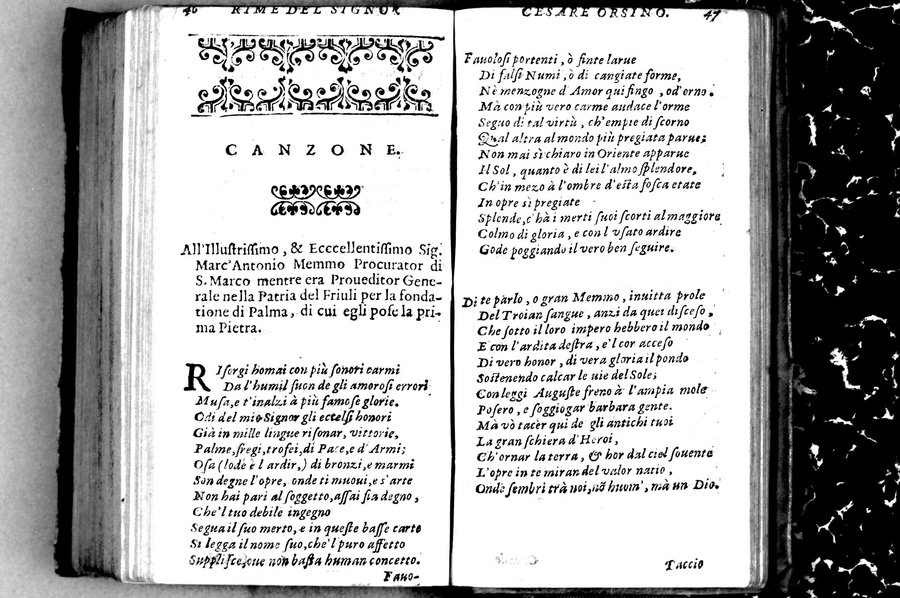 46 RIME DEL SIGNOR
CANZONE.
All'Illustrissimo, & Ecccellentissimo Sig.
Marc'Antonio Memmo Procurator di
S. Marco mentre era Proueditor Gene-
rale nella Patria del Friuli per la fonda-
tione di Palma, di cui egli pose la pri-
ma Pietra.
RIsorgi homai con più sonori carmi
Da l'humil suon de gli amorosi errori
Musa, e t'inalzi à più famose glorie.
Odi del mio Signor gli eccelsi honori
Già in mille lingue risonar, vittorie,
Palme, fregi, trofei, di Pace, e d'Armi;
Osa (lode è l ardir,) di bronzi, e marmi
Son degne l'opre, onde ti muoui, e s'arte
Non hai pari al soggetto, assai sia degno,
Che'l tuo debile ingegno
Segua il suo merto, e in queste basse carte
Si legga il nome suo, che'l puro affetto
Supplisce, oue non basta human concetto.
Fauo-
CESARE ORSINO. 47
Fauolosi portenti, ò finte larue
Di falsi Numi, ò di cangiate forme,
Nè menzogne d Amor qui fingo, od'orno.
Mà con più vero carme audace l'orme
Seguo di tal virtù, ch'empie di scorno
Qual altra al mondo più pregiata parue;
Non mai sì chiaro in Oriente apparue
Il Sol, quanto è di lei l'almo splendore.
Ch'in mezo à l'ombre d'esta fosca etate
In opre sì pregiate
Splende, c'hà i merti suoi scorti al maggiore
Colmo di gloria, e con l vsato ardire
Gode poggiando il vero ben seguire.
Di te parlo, o gran Memmo, inuitta prole
Del Troian sangue, anzi da quei disceso,
Che sotto il loro impero hebbero il mondo
E con l'ardita destra, e'l cor acceso
Di vero honor, di vera gloria il pondo
Sostenendo calcar le uie del Sole;
Con leggi Auguste freno à l'ampia mole
Posero, e soggiogar barbara gente.
Mà vò tacer qui de gli antichi tuoi
La gran schiera d'Heroi,
Ch'ornar la terra, & hor dal ciel souente
L'opre in te miran del valor natio,
Onde sembri trà noi, nõ huom', mà un Dio.
Taccio